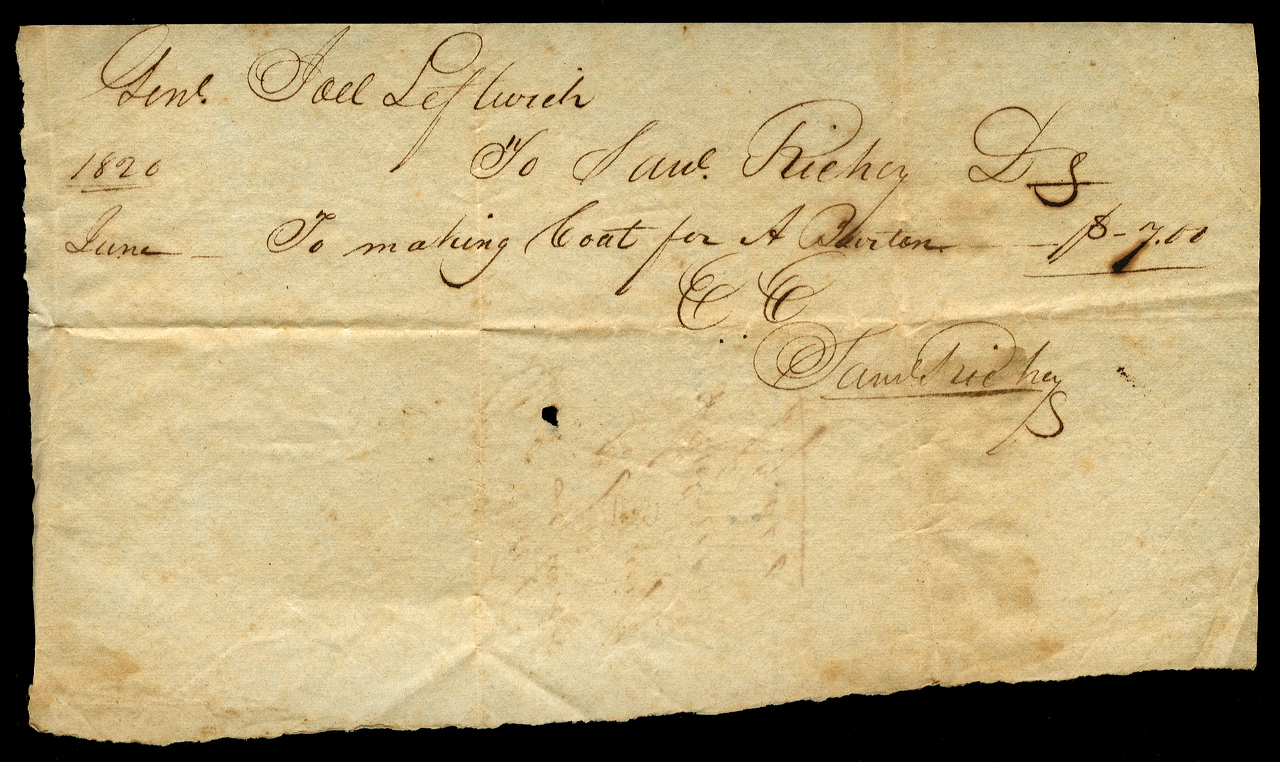 Genl. Joel Leftwich
1820 To Saml. Richey Ds
June To making Coat for A Burton $-7.00
E. E.
Saml Richey